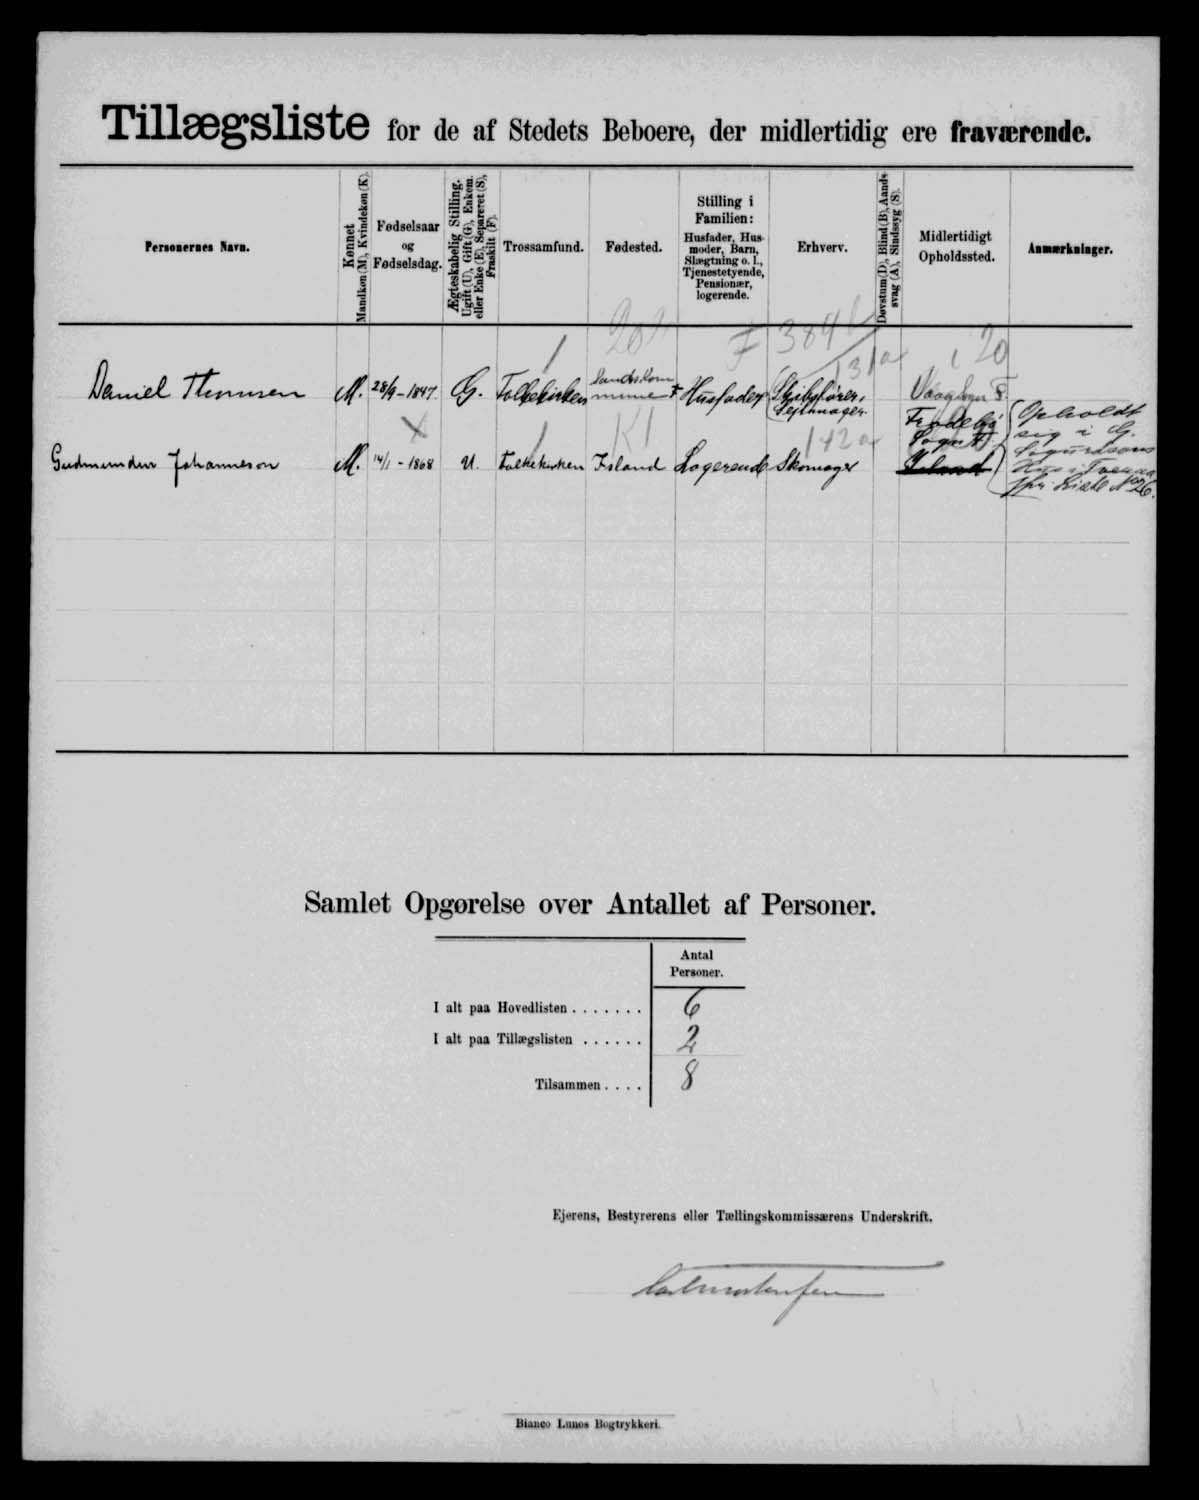 Tillægsliste for de af Stedets Beboere, der midlertidig ere fraværende.
Personernes Navn.
Kønnet
Mandkøn (M), Kvindekøn (K).
Fødselsaar
og
Fødselsdag.
Ægteskabelig Stilling.
Ugift (U), Gift (G), Enkem.
eller Enke (E), Separeret (S),
Fraskilt (F).
Trossamfund.
Fødested.
Stilling i
Familien:
Husfader, Hus-
moder, Barn,
Slægtning o. l.,
Tjenestetyende,
Pensionær,
logerende.
Erhverv.
Døvstum (D), Blind (B), Aands-
svag (A), Sindssyg (S).
Midlertidigt
Opholdssted.
Anmærkninger.
384
131a
20
Daniel Thomsen M. 28/9 - 1847 G. Folkekirken Husfader Skibsfører,
Sejlmager
K1 142a
Gudmundur Johanneson M. 14/1 - 1868 U. Folkekirken Island Logerende Skomager Island
Opholdt
sig i G.
Samlet Opgørelse over Antallet af Personer.
Antal
Personer.
I alt paa Hovedlisten . . . . . . . 6
I alt paa Tillægslisten . . . . . . 2
Tilsammen . . . . 8
Ejerens, Bestyrerens eller Tællingskommissærens Underskrift.
Bianco Lunos Bogtrykkeri.